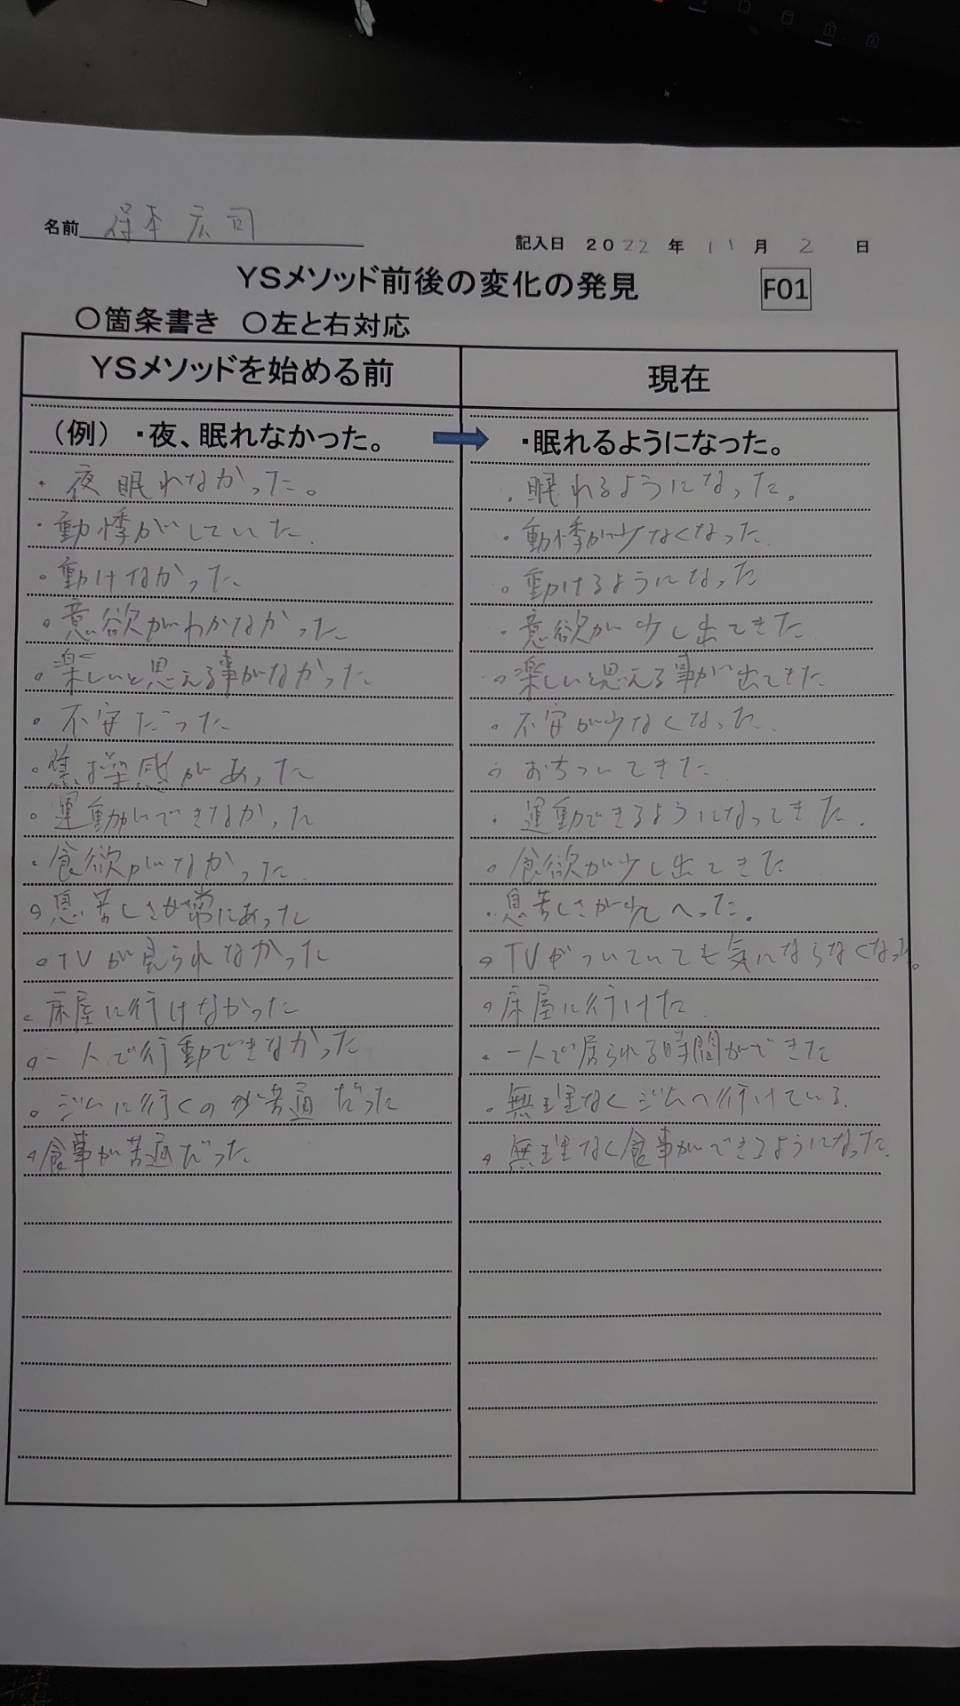 名前 保本 広司
記入日 2022 年 11 月 2 日
YSメソッド前後の変化の発見 F01
○箇条書き ○左と右対応
YSメソッドを始める前 現在
(例) ・夜、眠れなかった。 ・眠れるようになった。
・夜眠れなかった。 ・眠れるようになった。
・動悸がしていた. ・動悸が少なくなった.
・動けなかった ・動けるようになった
・意欲がわかなかった ・意欲が少し出てきた
・楽しいと思える事がなかった ・楽しいと思える事が出てきた
・不安だった ・不安が少なくなった.
・焦燥感があった ・おちついてきた
・運動ができなかった ・運動できるようになってきた.
・食欲がなかった. ・食欲が少し出てきた
・息苦しさが常にあった ・息苦しさが少しへった。
・TVが見られなかった ・TVがついていても気にならなくなった。
・床屋に行けなかった ・床屋に行けた.
・一人で行動できなかった ・一人で居られる時間ができた
・ジムに行くのが苦痛だった ・無理なくジムへ行けている.
・食事が苦痛だった ・無理なく食事ができるようになった.